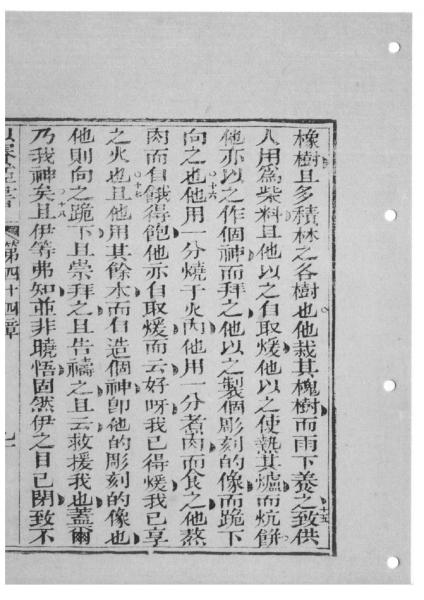 橡樹且多積林之各樹也他栽其槐樹而雨下養之致供
十五
人用爲柴料且他以之自取煖他以之使熱其爐而炕餅
他亦以之作個神而拜之他以之製個彫刻的像而跪下
向之也他用一分燒于火內他用一分煮肉而食之他熬
十六
肉而自餓得飽他亦自取煖而云好呀我已得煖我已享
之火也且他用其餘木而自造個神卽他的彫刻的像也
十七
他則向之跪下且崇拜之且告禱之且云救援我也蓋爾
乃我神矣且伊等弗知並非曉悟固然伊之目已閉致不
十八
第四十四章